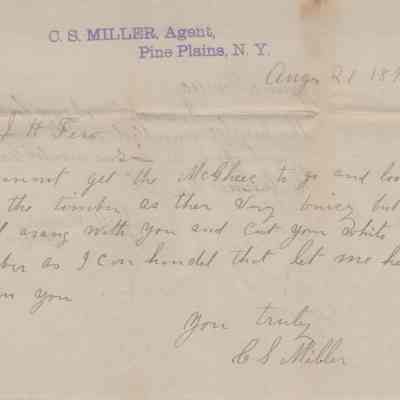 C. S. MILLER, Agent,
Pine Plains, N. Y.
Aug 21 189
J H Fero
annot get the McGhee to go and loo
the timber as ther very buicy but
asang with you and Cut your White
ber as I can handel that let me he
you
You truly
C S Miller